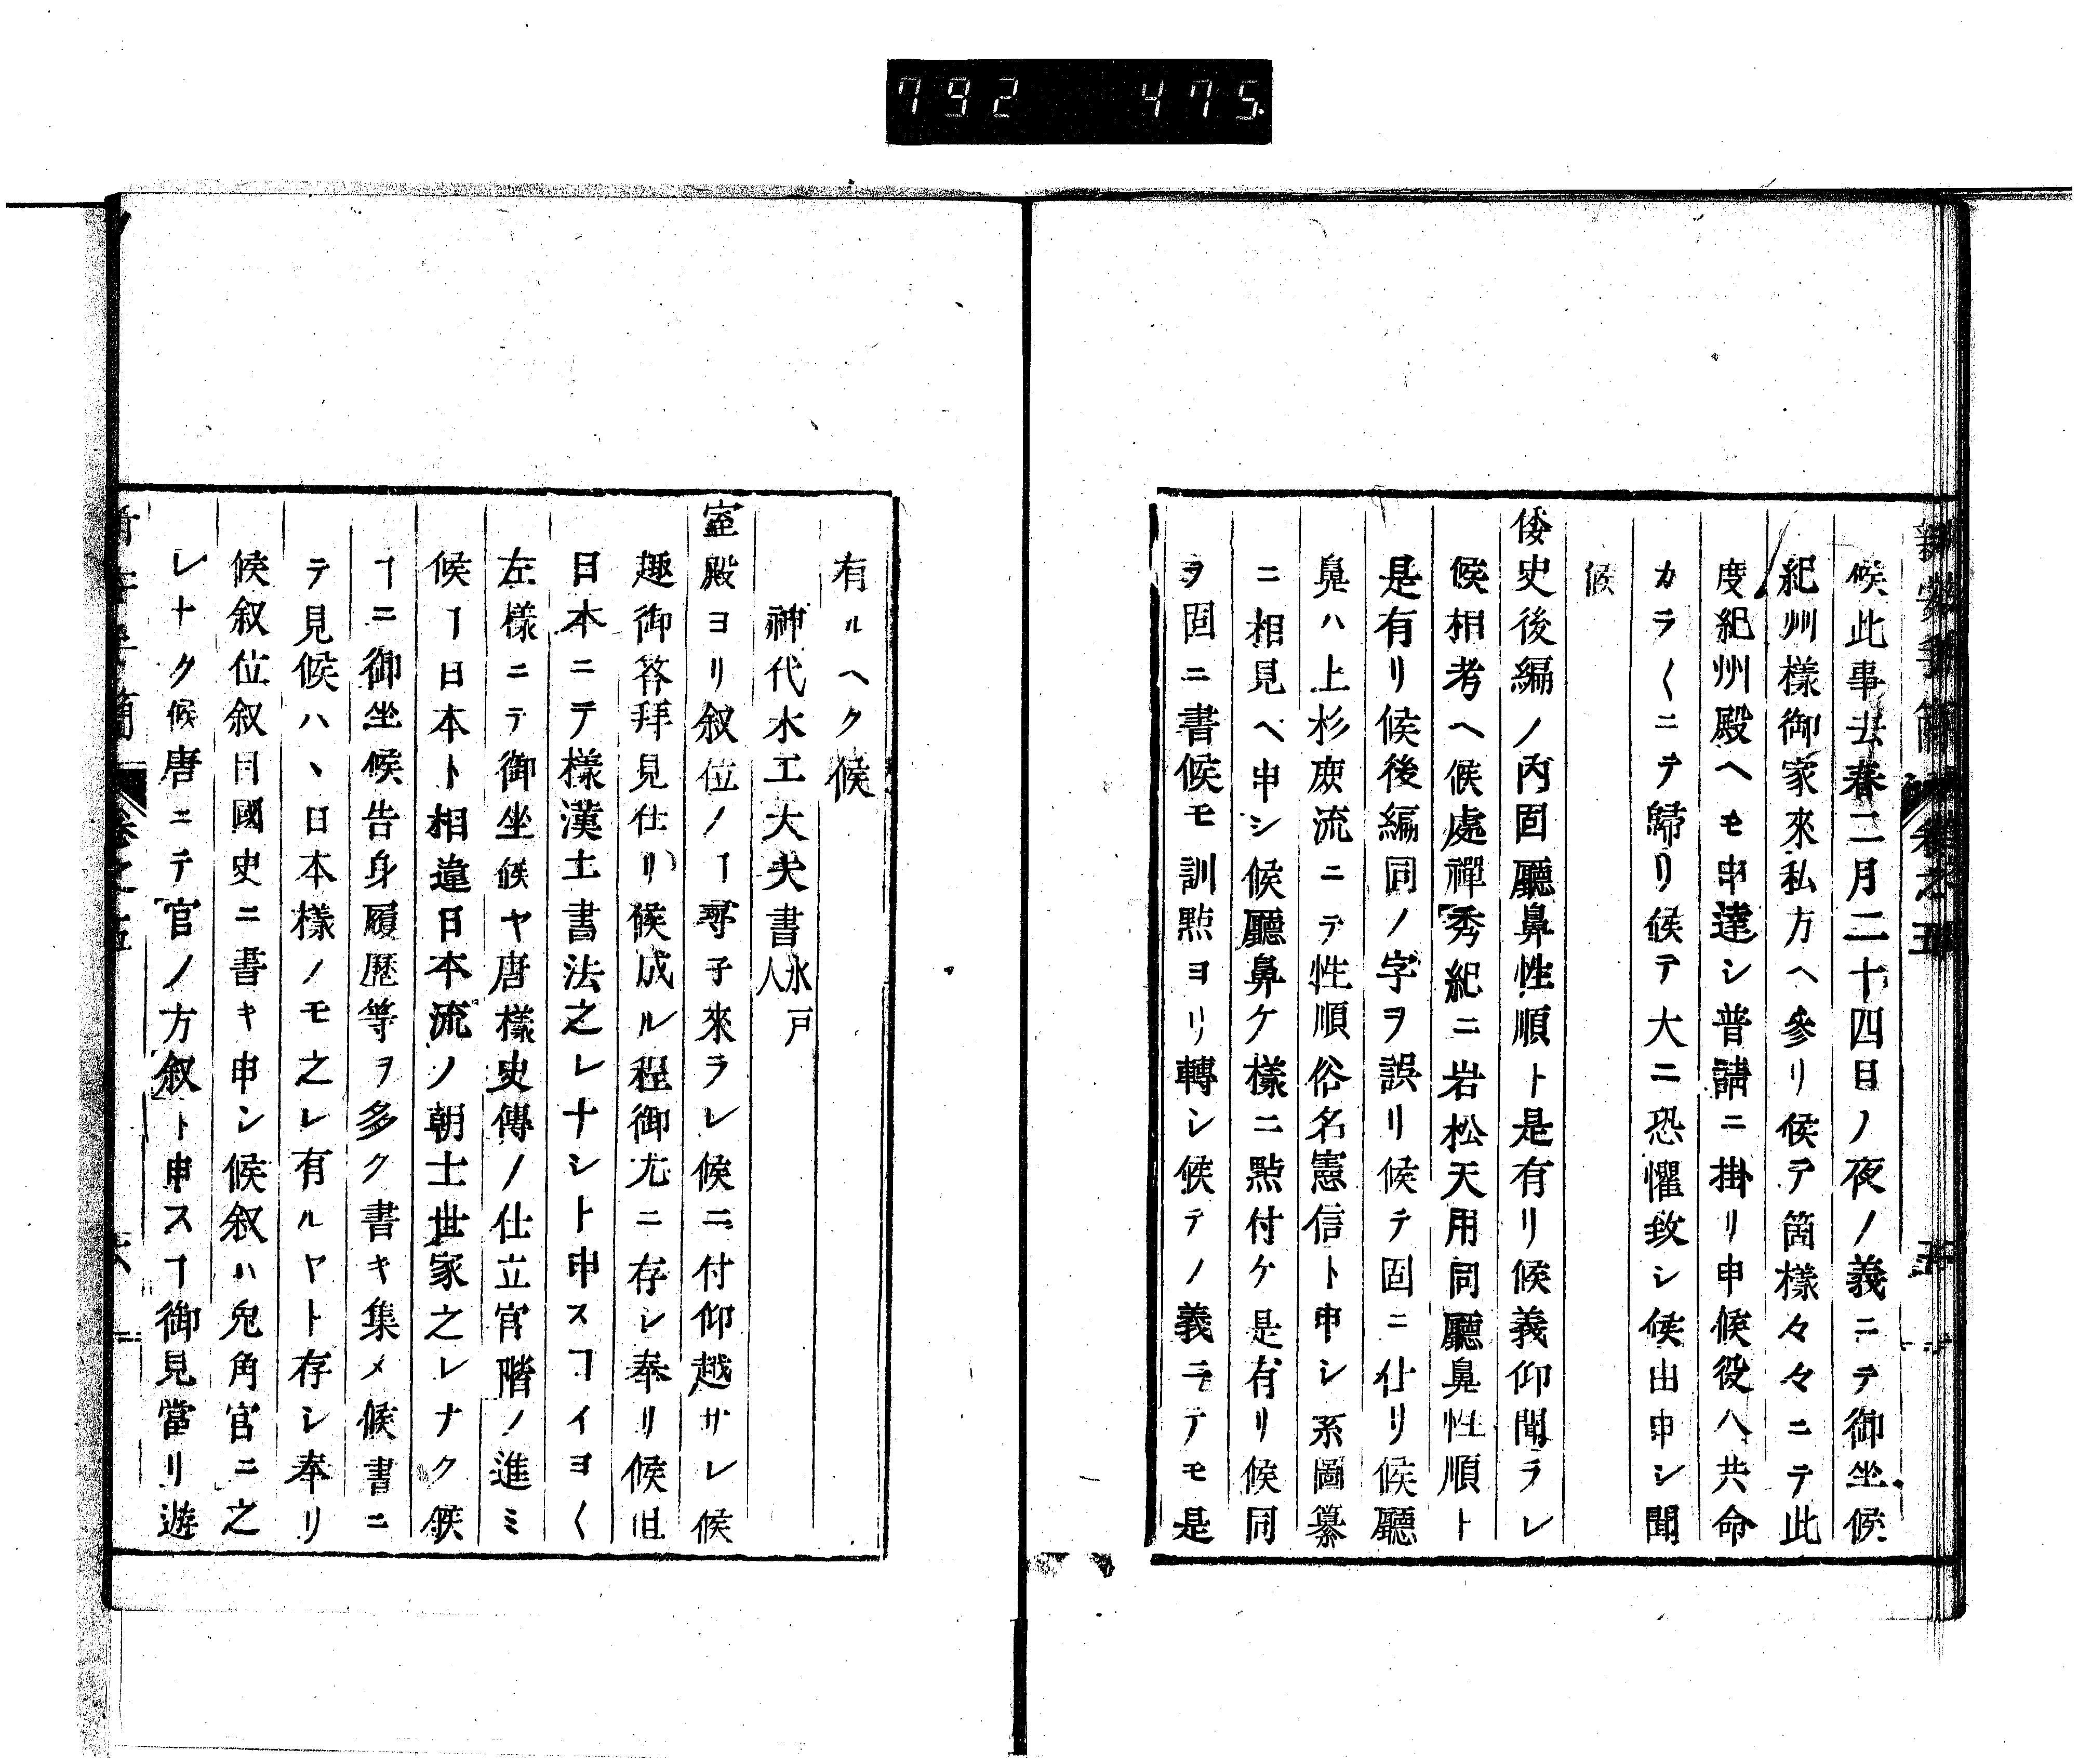 792 475
候此事去春二月二十四日ノ夜ノ義ニテ御坐候
紀州樣御家來私方ヘ參リ候テ箇樣々々ニテ此
度紀州殿ヘモ申達シ普請ニ掛リ申候役人共命
カラ〱ニテ歸リ候テ大ニ恐懼致シ候由申シ聞
候
倭史後編ノ內固廳鼻性順ト是有リ候義仰聞ラレ
候相考ヘ候處禪秀紀ニ岩松天用同廳鼻性順ト
是有リ候後編同ノ字ヲ誤リ候テ固ニ仕リ候廳
鼻ハ上杉庶流ニテ性順俗名憲信ト申シ系圖纂
ニ相見ヘ申シ候廳鼻ケ樣ニ點付ケ是有リ候同
ヲ固ニ書候モ訓點ヨリ轉シ候テノ義ニテモ是
有ルヘク候
神代木工大夫書 水戶人
室殿ヨリ叙位ノヿ尋子來ラレ候ニ付仰越サレ候
趣御答拜見仕リ候成ル程御尤ニ存シ奉リ候且
日本ニテ樣漢土書法之レナシト申スヿイヨ〱
左樣ニテ御坐候ヤ唐樣史傳ノ仕立官階ノ進ミ
候ヿ日本ト相違日本流ノ朝士世家之レナク候
ヿニ御坐候告身履歷等ヲ多ク書キ集メ候書ニ
テ見候ハヽ日本樣ノモ之レ有ルヤト存シ奉リ
候叙位叙目國史ニ書キ申シ候叙ハ兔角官ニ之
レナク候唐ニテ官ノ方叙ト申スヿ御見當リ遊